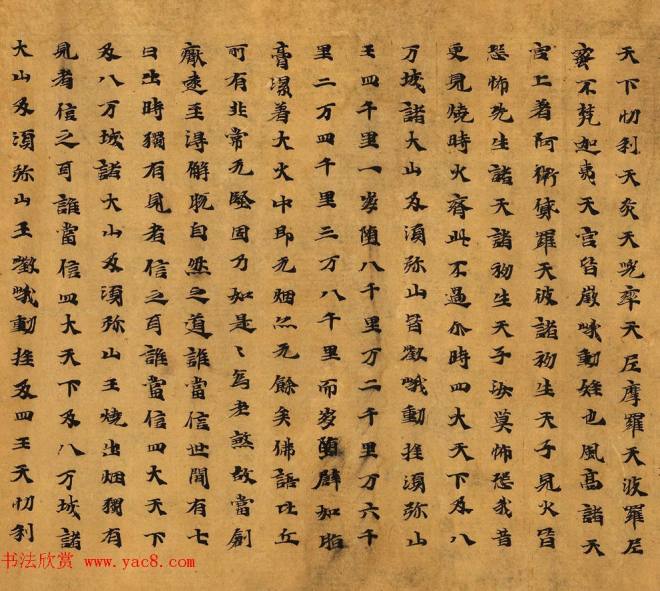 天下忉利天炎天兜率天尼摩羅天波羅尼
蜜不梵迦夷天宮皆嶷峨動摇也風髙諸天
宮上著阿衛貨羅天彼諸初生天子見火皆
恐怖先生諸天語初生天子汝莫怖恐我昔
更見燒時火齊此不過尒時四大天下及八
万城諸大山及湏弥山皆嶷峨動摇湏弥山
王四千里一崩墮八千里万二千里万六千
里二万四千里三万八千里而崩墮譬如脂
膏著大火中即无烟无餘矣佛語比丘
所有非常无堅固乃如是〻為老煞故當創
厭遠至得解脫自然之道誰當信世間有七
日出時獨有見者信之耳誰當信四大天下
及八万城諸大山及湏弥山王燒出烟獨有
見者信之耳誰當信四大天下及八万城諸
大山及湏弥山王嶷峨動摇及四王天忉利
书法欣赏 www.yac8.com